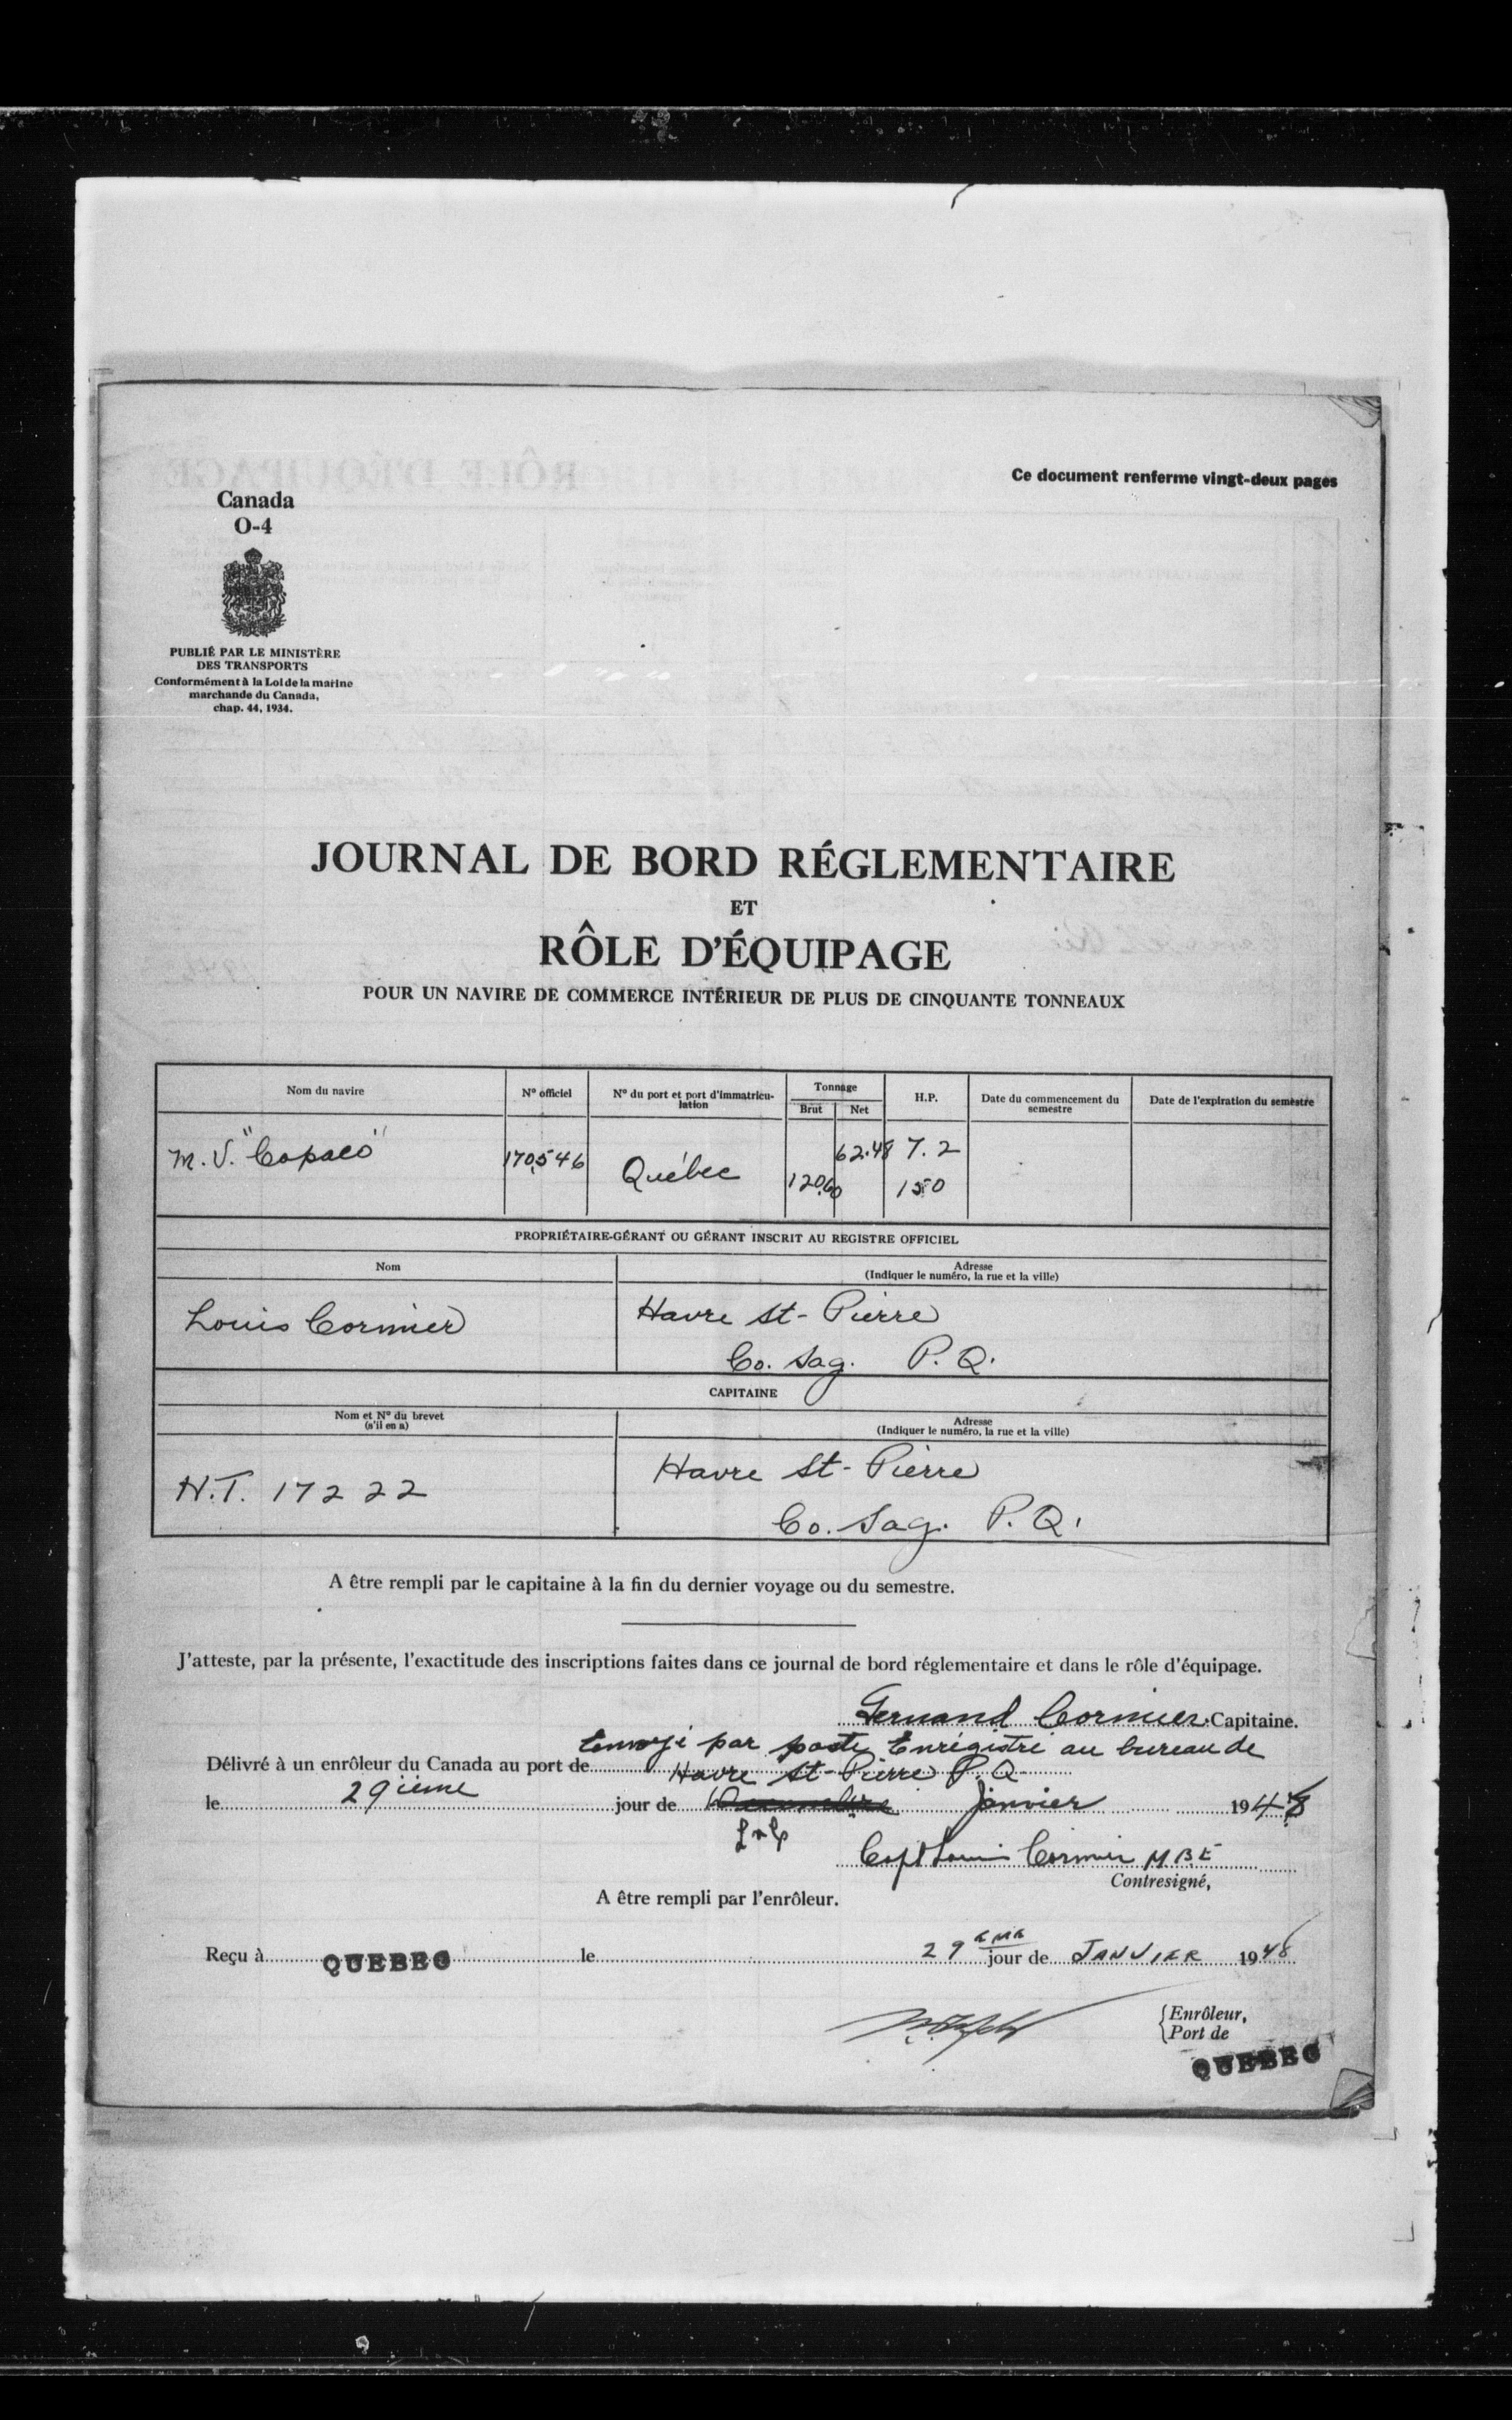 Ce document renferme vingt-deux pages
Canada
O-4
PUBLIÉ PAR LE MINISTÈRE
DES TRANSPORTS
Conformément à la Loi de la marine
marchande du Canada,
chap. 44, 1934.
JOURNAL DE BORD RÉGLEMENTAIRE
ET
RÔLE D'ÉQUIPAGE
POUR UN NAVIRE DE COMMERCE INTÉRIEUR DE PLUS DE CINQUANTE TONNEAUX
Nom du navire
Nº officiel
Nº du port et port d'immatricu-
lation
Tonnage
Brut Net
H.P.
Date du commencement du
semestre
Date de l'expiration du semestre
M.V. "Copaco"
170546
Québec
120.60
62.48
7.2
150
PROPRIÉTAIRE-GÉRANT OU GÉRANT INSCRIT AU REGISTRE OFFICIEL
Nom
Adresse
(Indiquer le numéro, la rue et la ville)
Louis Cormier
Havre St-Pierre
Co. Sag. P.Q.
CAPITAINE
Nom et Nº du brevet
(s'il en a)
Adresse
(Indiquer le numéro, la rue et la ville)
H.T. 17222
Havre St-Pierre
Co. Sag. P.Q.
A être rempli par le capitaine à la fin du dernier voyage ou du semestre.
J'atteste, par la présente, l'exactitude des inscriptions faites dans ce journal de bord réglementaire et dans le rôle d'équipage.
Fernand Cormier Capitaine.
Envoyé par poste Enrégistré au bureau de
Délivré à un enrôleur du Canada au port de Havre St-Pierre P.Q
le 29ième jour de janvier 1948
Capt Louis Cormier MBE
Contresigné,
A être rempli par l'enrôleur.
Reçu à QUEBEC le 29 EME jour de JANVIER 1948
Enrôleur,
Port de
QUEBEC